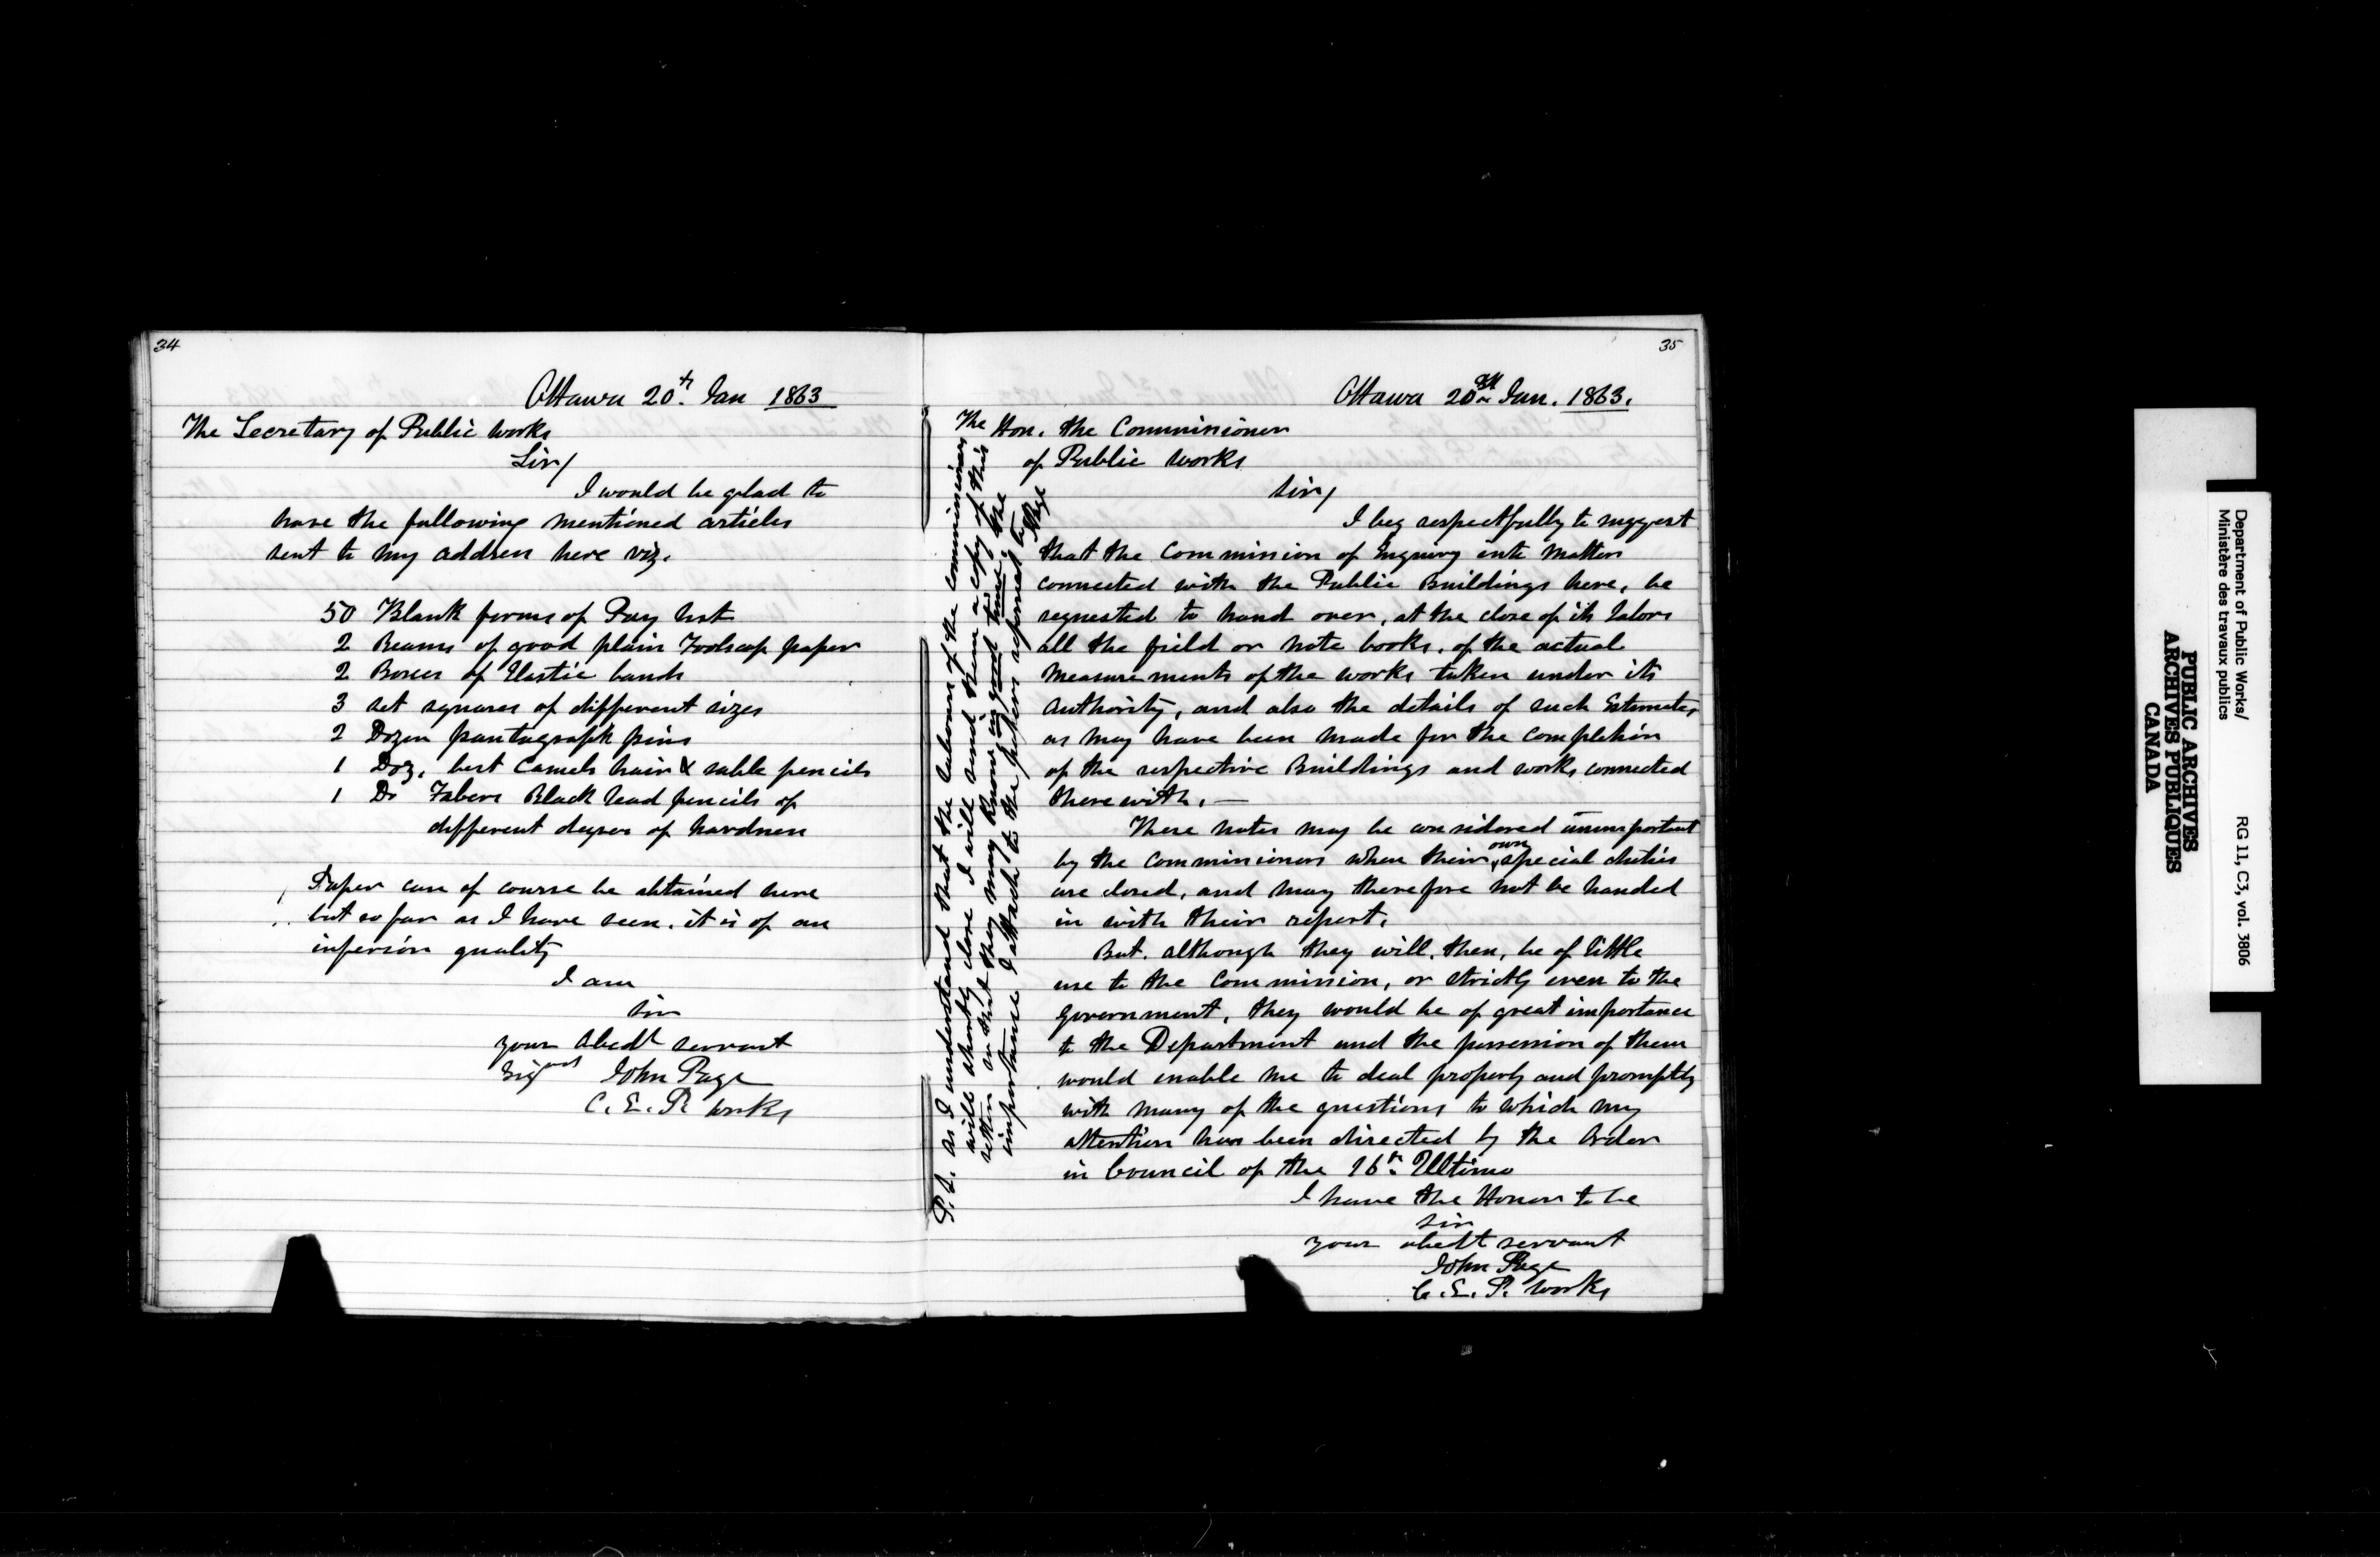 34
Ottawa 20th Jan 1863
The Secretary of Public Works
Sir/
I would be glad to
have the following mentioned articles
sent to my address here viz.
50 Blank forms of Pay list
2 Reams of good plain Foolscap paper
2 Boxes of Elastic bands
3 set squares of different sizes
2 Dozen pantagraph pins
1 Doz. best Camels hair & sable pencils
1 Do Fabers Black lead pencils of
different degrees of hardness
Paper can of course be obtained here
but so far as I have seen. it is of an
inferior quality
I am
Sir
your obedt servant
Signed John Page
C. E. P. Works
35
Ottawa 20th Jan. 1863.
The Hon. the Commissioner
of Public Works
Sir/
I beg respectfully to suggest
that the Commission of Enquiry into Matters
connected with the Public Buildings here, be
requested to hand over, at the close of its labors
all the field or note books. of the actual
Measurements of the works taken under its
authority, and also the details of such Estimates
as may have been made for the completion
of the respective Buildings and works connected
therewith. —
These notes may be considered unimportant
by the Commissioners when their own special duties
are closed, and may therefore not be handed
in with their report.
But. although they will. then, be of little
use to the Commission, or strictly even to the
Government, they would be of great importance
to the Department and the possession of them
would enable me to deal properly and promptly
with many of the questions to which my
attention has been directed by the Order
in Council of the 16th Ultimo
I have the Honor to be
Sir
your obedt servant
John Page
C. E. P. Works
P.S. As I understand that the labours of the Commissioners
will shortly close I will send them a copy of this
letter so that they may know in good time, the
importance I attach to the notes referred to
J Page
Department of Public Works/
Ministère des travaux publics
RG 11, C3, vol. 3806
PUBLIC ARCHIVES
ARCHIVES PUBLIQUES
CANADA